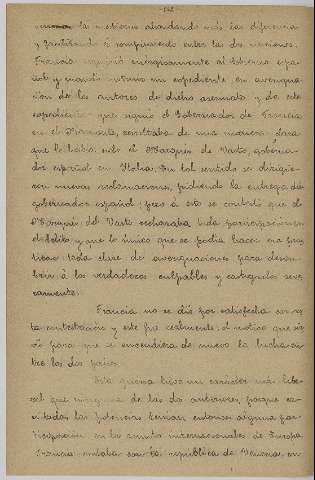 142
la historia ahondando más las diferencias
y facilitando el rompimiento entre las dos naciones.
Francia requirió enérgicamente al Gobierno espa-
ñol y cuando un expediente en averigua-
ción de los autores de dicho asesinato y de este
expediente que siguió el Gobernador de Francia
en el Piamonte, resultaba de una manera clara
que lo había sido el Marqués de Vasto, goberna-
dor español en Italia. En tal sentido se dirigie-
ron nuevas reclamaciones, pidiendo la entrega del
gobernador español; pero a esto se contestó que el
Marqués del Vasto rechazaba toda participación en
el delito y que lo único que se podía hacer era prac-
ticar toda clase de averiguaciones para descu-
brir a los verdaderos culpables y castigarlos seve-
ramente.
Francia no se dió por satisfecha con es-
ta contestación y este fue realmente el motivo que sir-
vió para que se encendiera de nuevo la lucha en-
tre los dos países.
Esta guerra tuvo un carácter más libe-
ral que ninguna de las dos anteriores, porque ca-
si todas las potencias tenían entonces alguna par-
ticipación en los asuntos internacionales de Europa.
Francia contaba con la república de Venecia, en